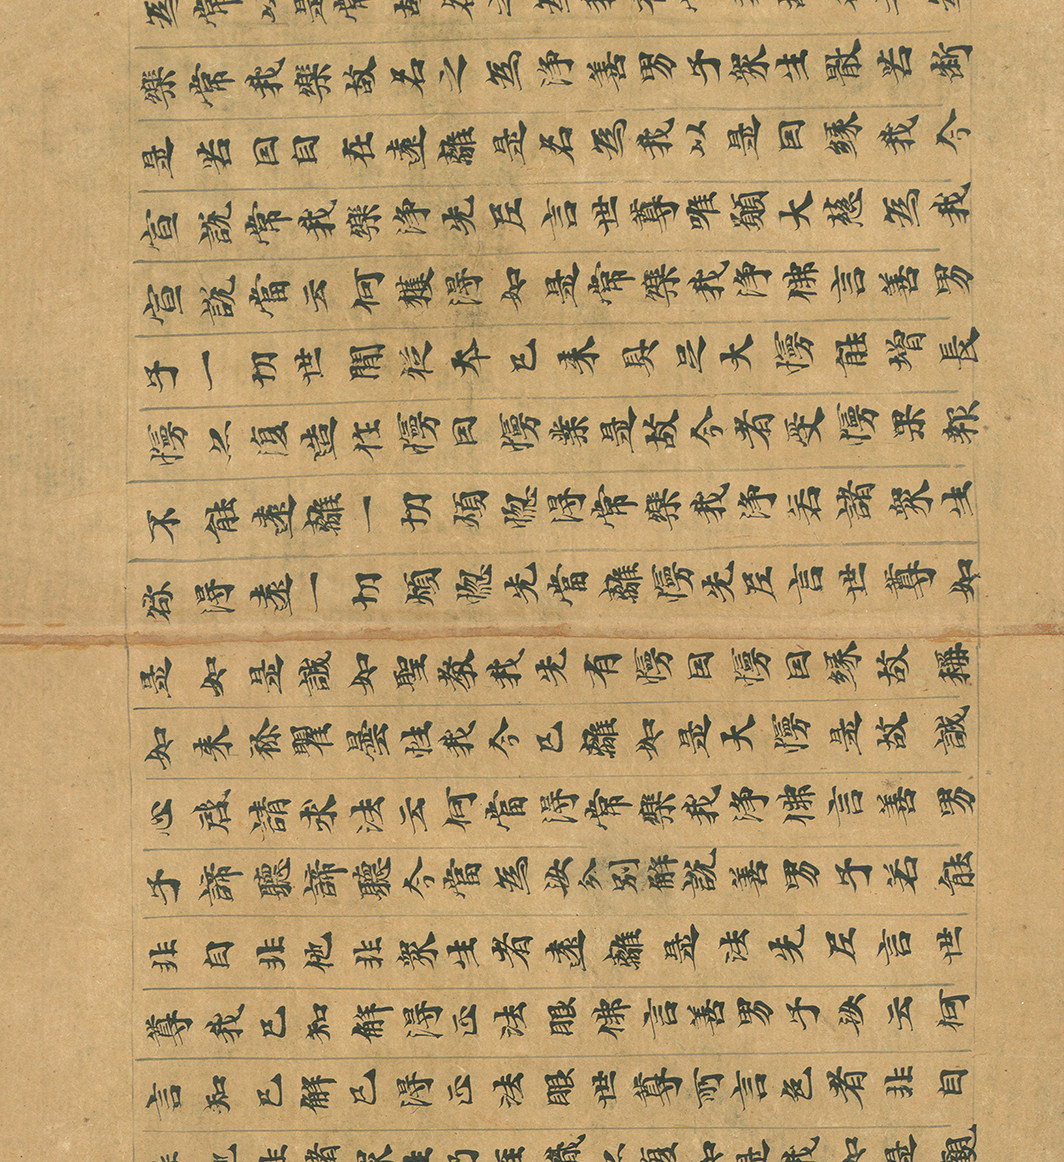 樂常我樂故名之為淨善男子眾生猒苦斷
是苦因自在遠離是名為我以是因緣我今
宣說常我樂淨先尼言世尊唯願大慈為我
宣說當云何獲得如是常樂我淨佛言善男
子一切世間從本已來具足大慢能增長
慢亦復造作慢因慢業是故今者受慢果報
不能遠離一切煩惱得常樂我淨若諸眾生
欲得遠一切煩惱先當離慢先尼言世尊如
是如是誠如聖教我先有慢因慢因緣故稱
如來祢瞿曇性我今已離如是大慢是故誠
心啟請求法云何當得常樂我淨佛言善男
子諦聽諦聽今當為汝分別解說善男子若能
非自非他非眾生者遠離是法先尼言世
尊我已知解得正法眼佛言善男子汝云何
言知已解已得正法眼世尊所言色者非自